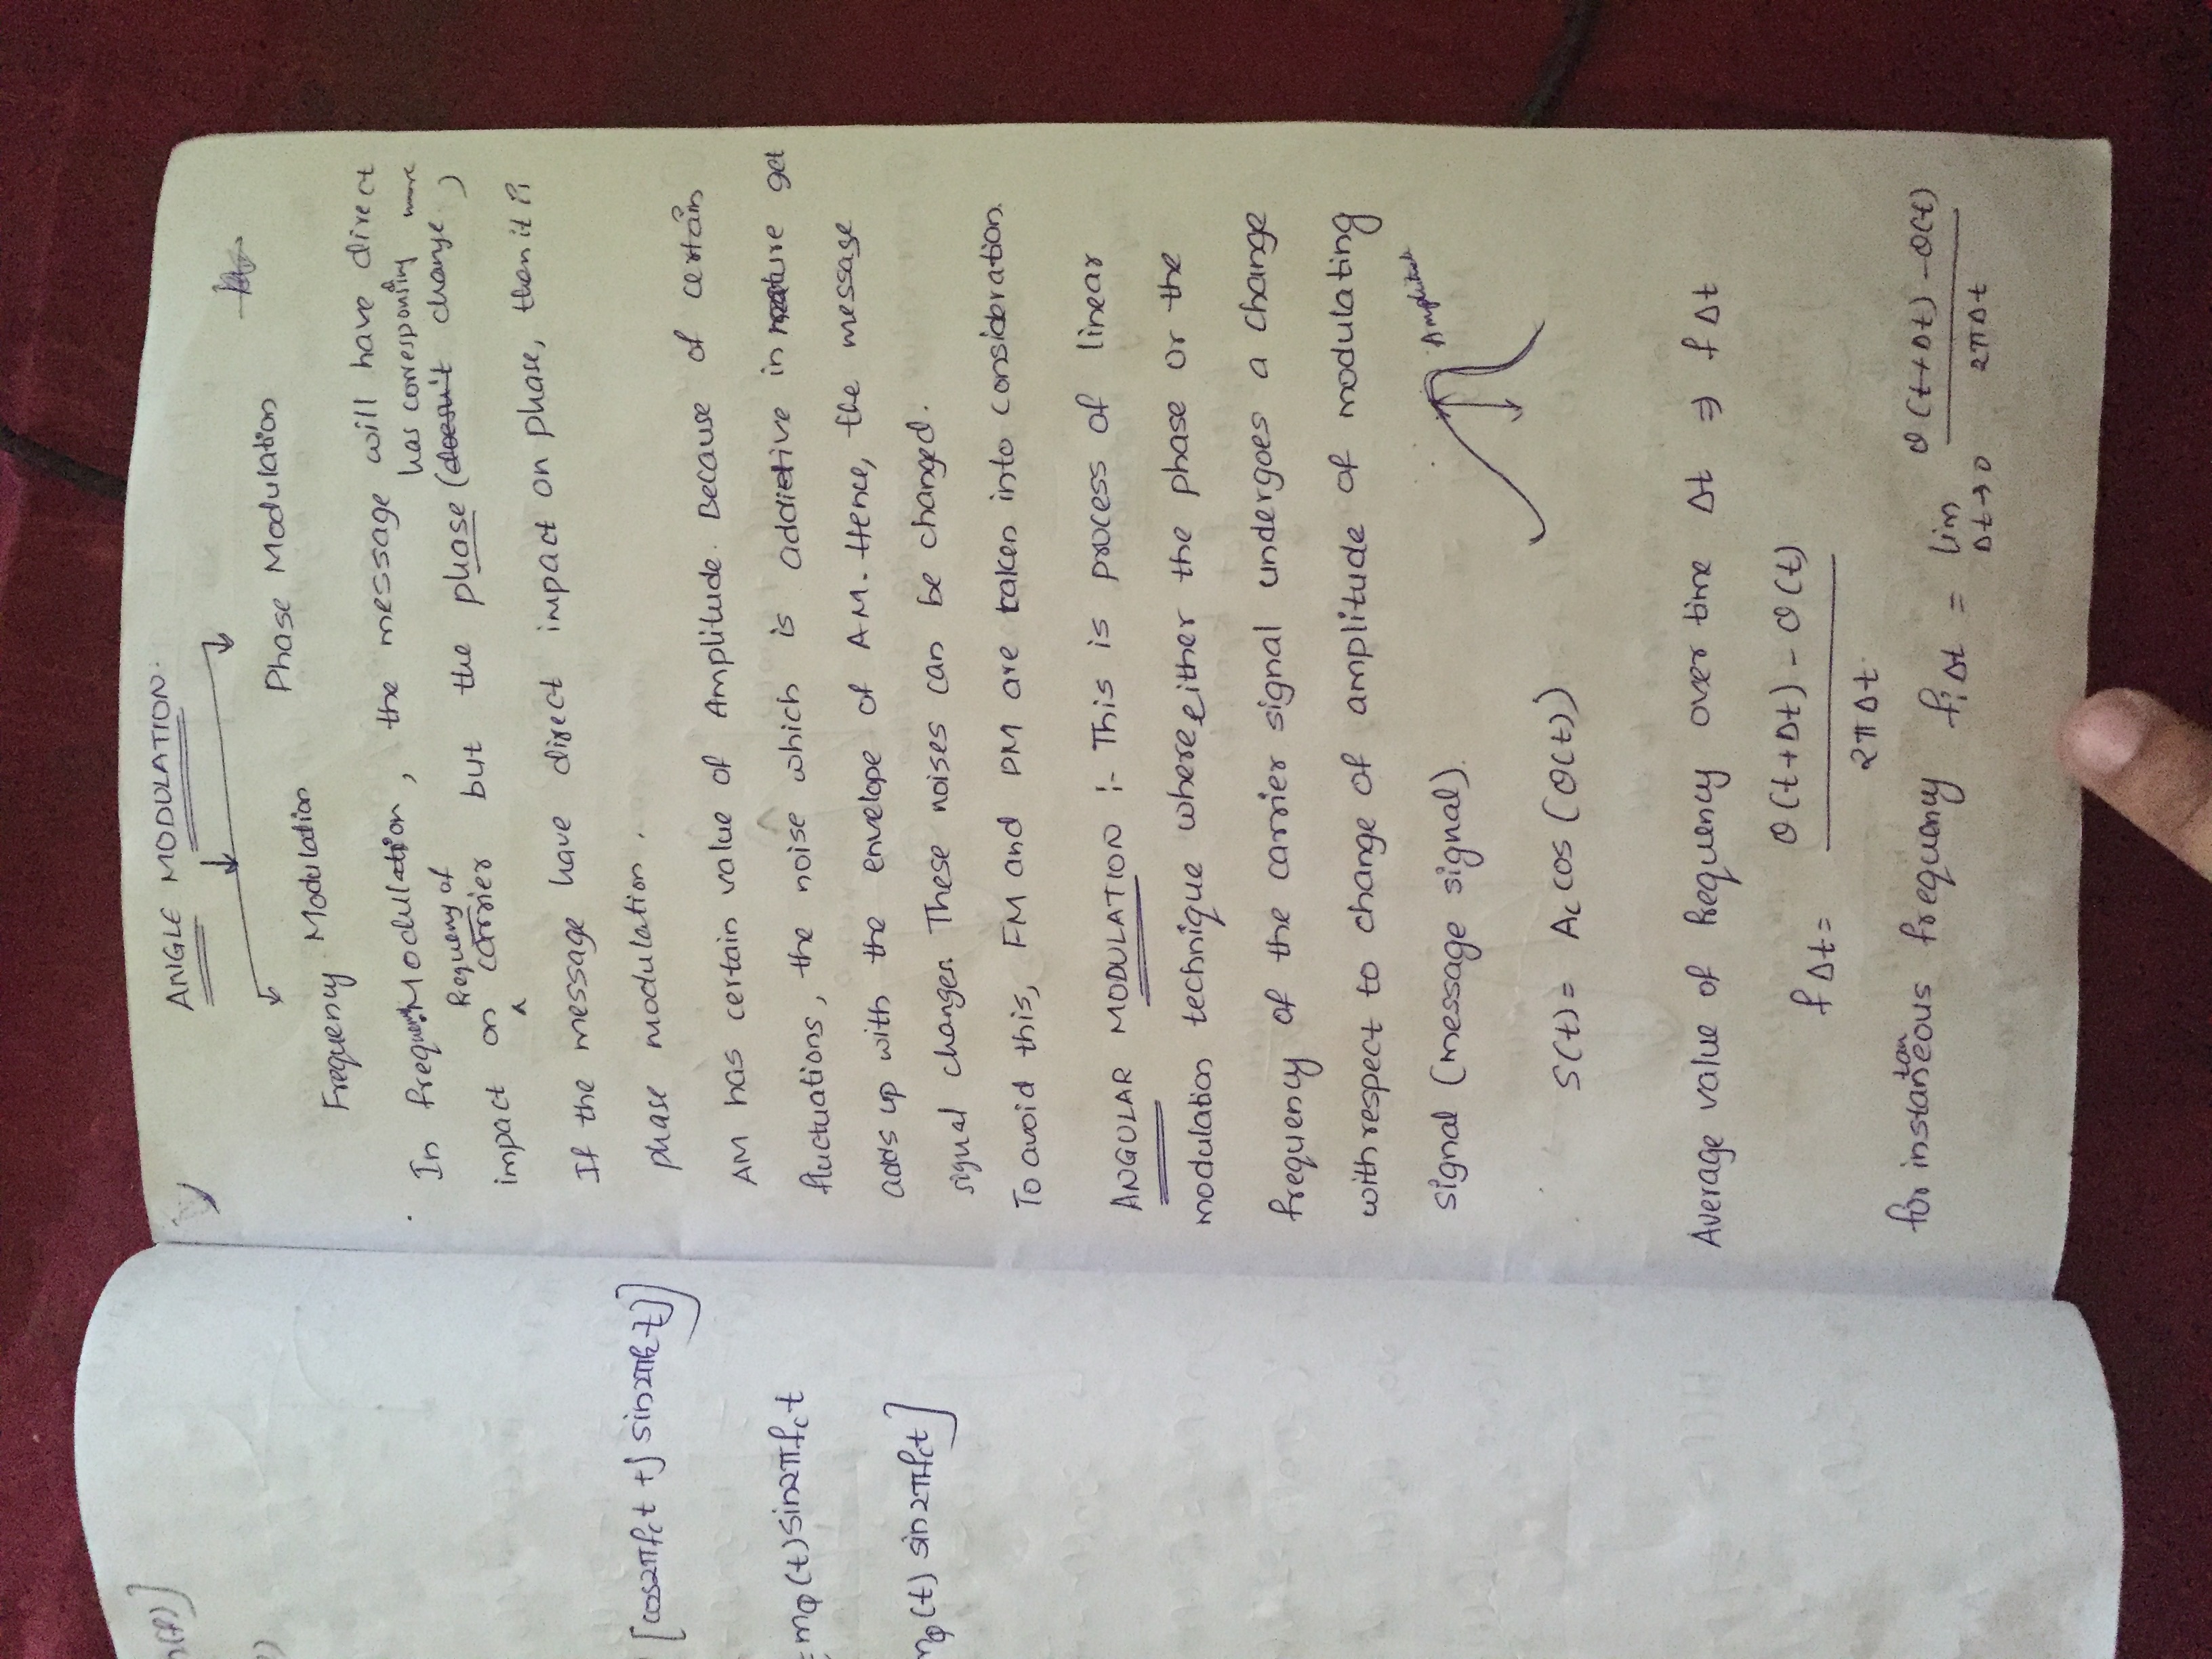 n(t)]
[cos2πfct + j sin2πfct)]
= mφ(t) sin2πfct
mφ(t) sin2πfct]
ANGLE MODULATION.
Phase Modulation
Frequency Modulation
In frequency Modulation, the message will have direct
has corresponsing
frequency of
impact on carrier but the phase (doesn't change)
If the message have direct impact on phase, then it is
phase modulation.
AM has certain value of Amplitude. Because of certain
fluctuations, the noise which is addictive in nature get
adds up with the envelope of AM. Hence, the message
signal changes. These noises can be changed.
To avoid this, FM and PM are taken into consideration.
ANGULAR MODULATION :- This is process of linear
modulation technique where either the phase or the
frequency of the carrier signal undergoes a change
with respect to change of amplitude of modulating
signal (message signal).
Amplitude
S(t) = Ac cos (θ(t))
Average value of frequency over time Δt ⇒ fΔt
fΔt = θ(t+Δt) - θ(t)
2πΔt
for instantaneous frequency fiΔt = lim θ(t+Δt) - θ(t)
Δt→0 2πΔt